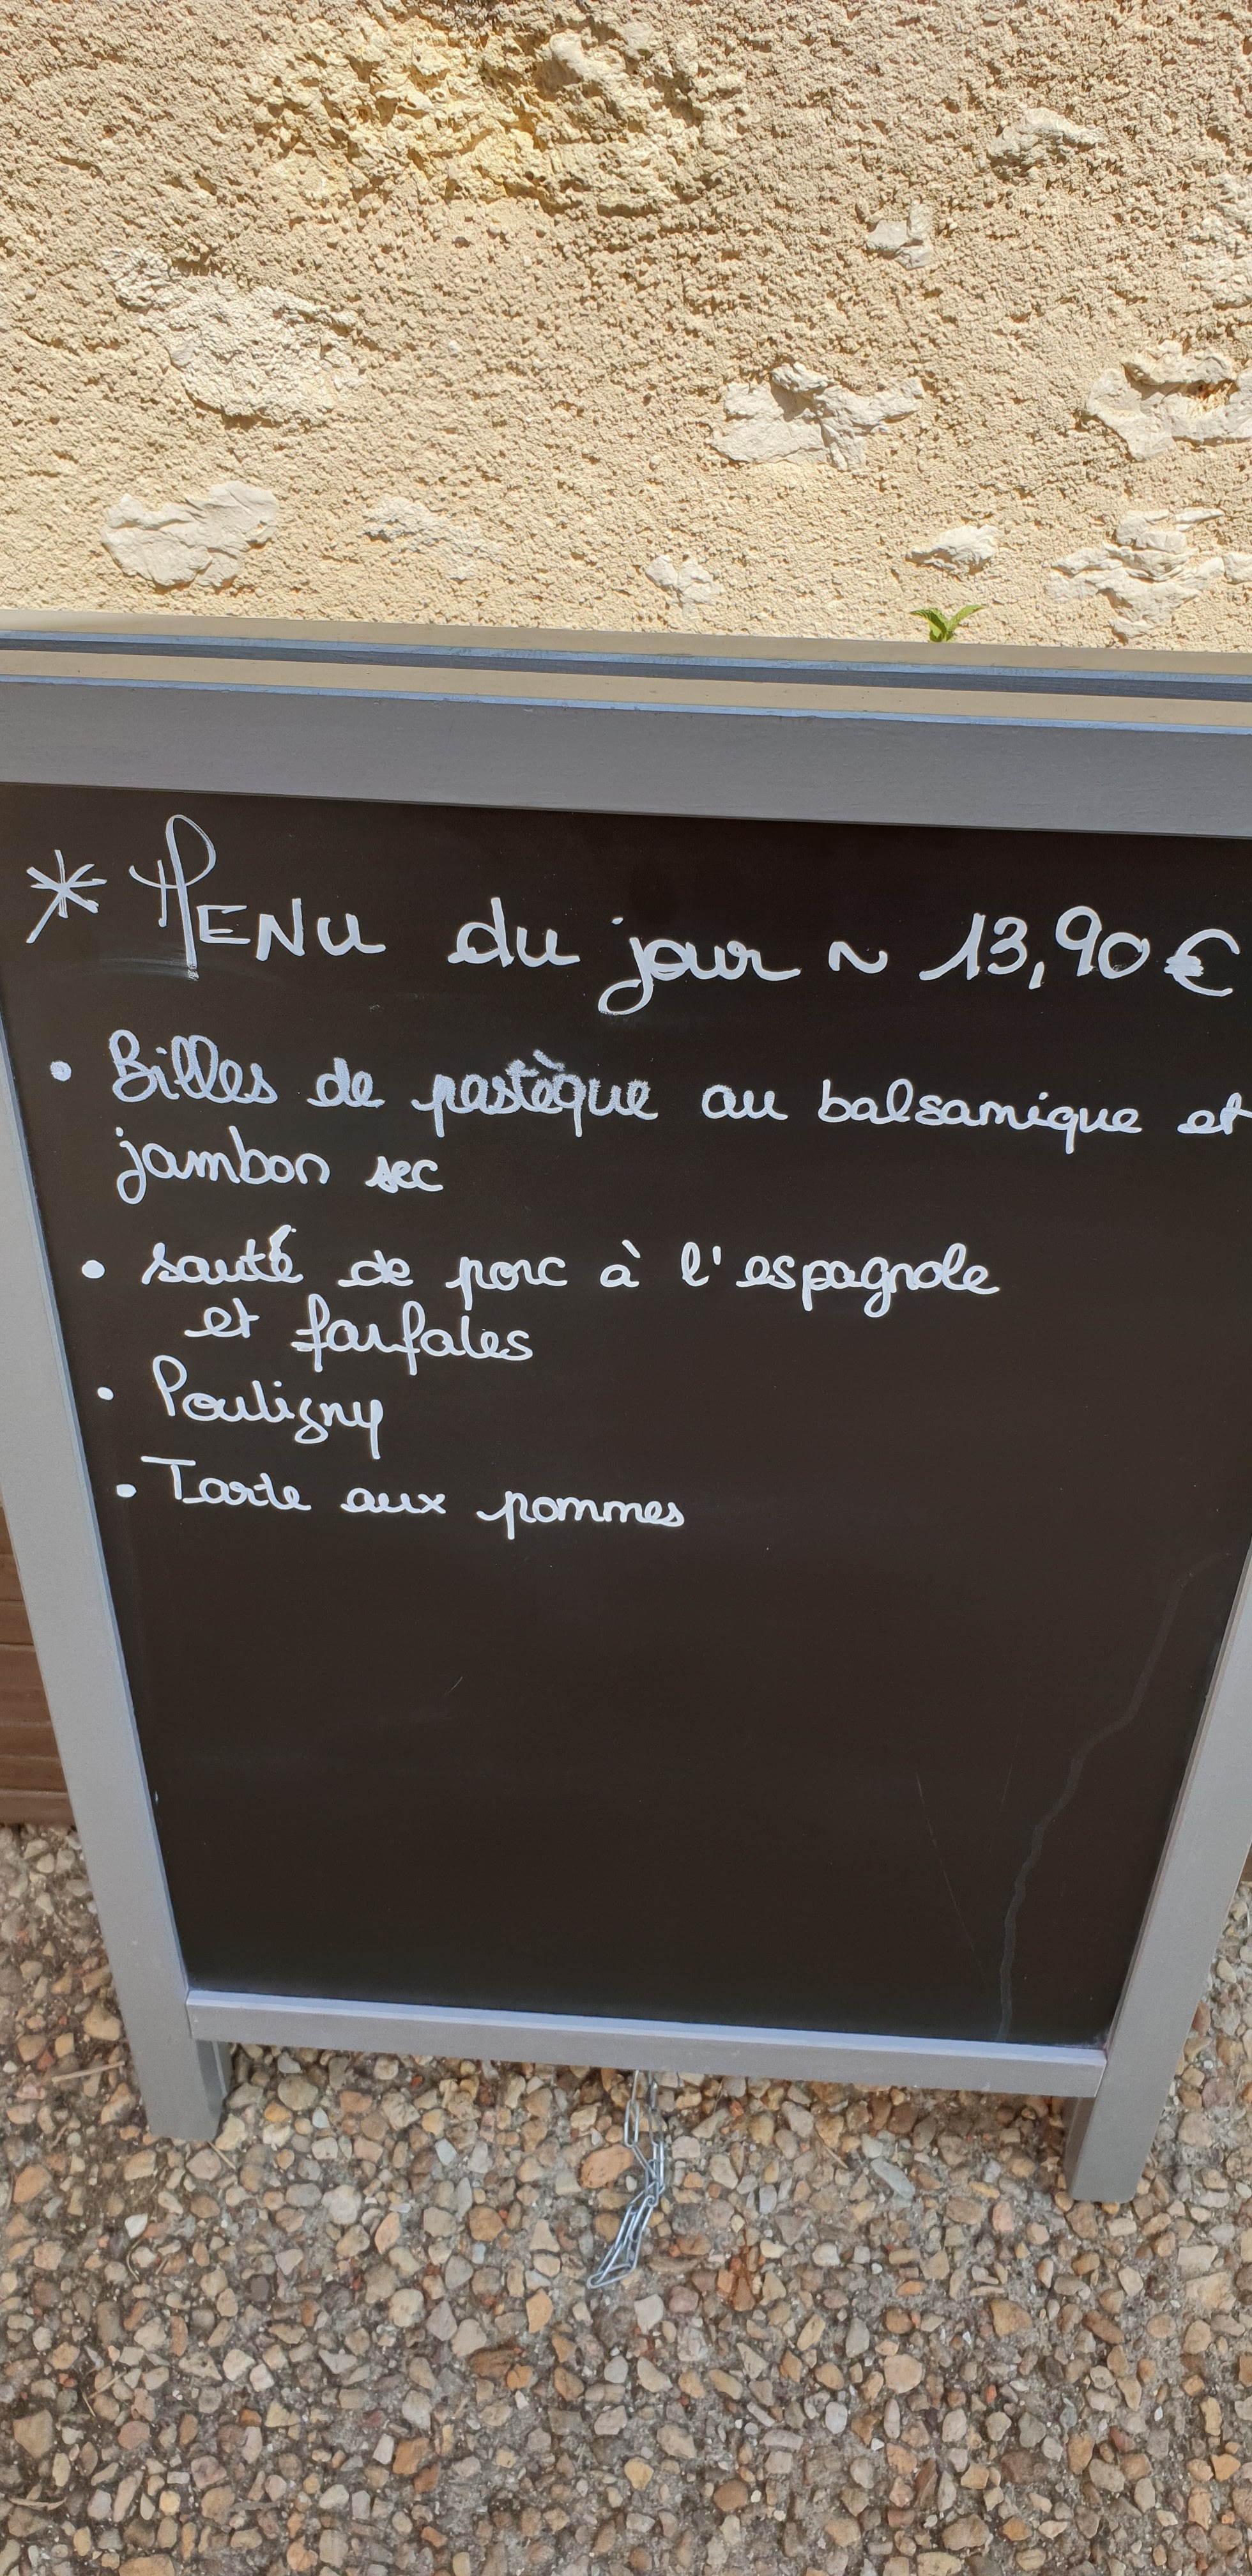 * MENU du jour ~ 13,90 €
• Billes de pastèque au balsamique et
jambon sec
• sauté de porc à l'espagnole
et farfales
• Pouligny
• Tarte aux pommes